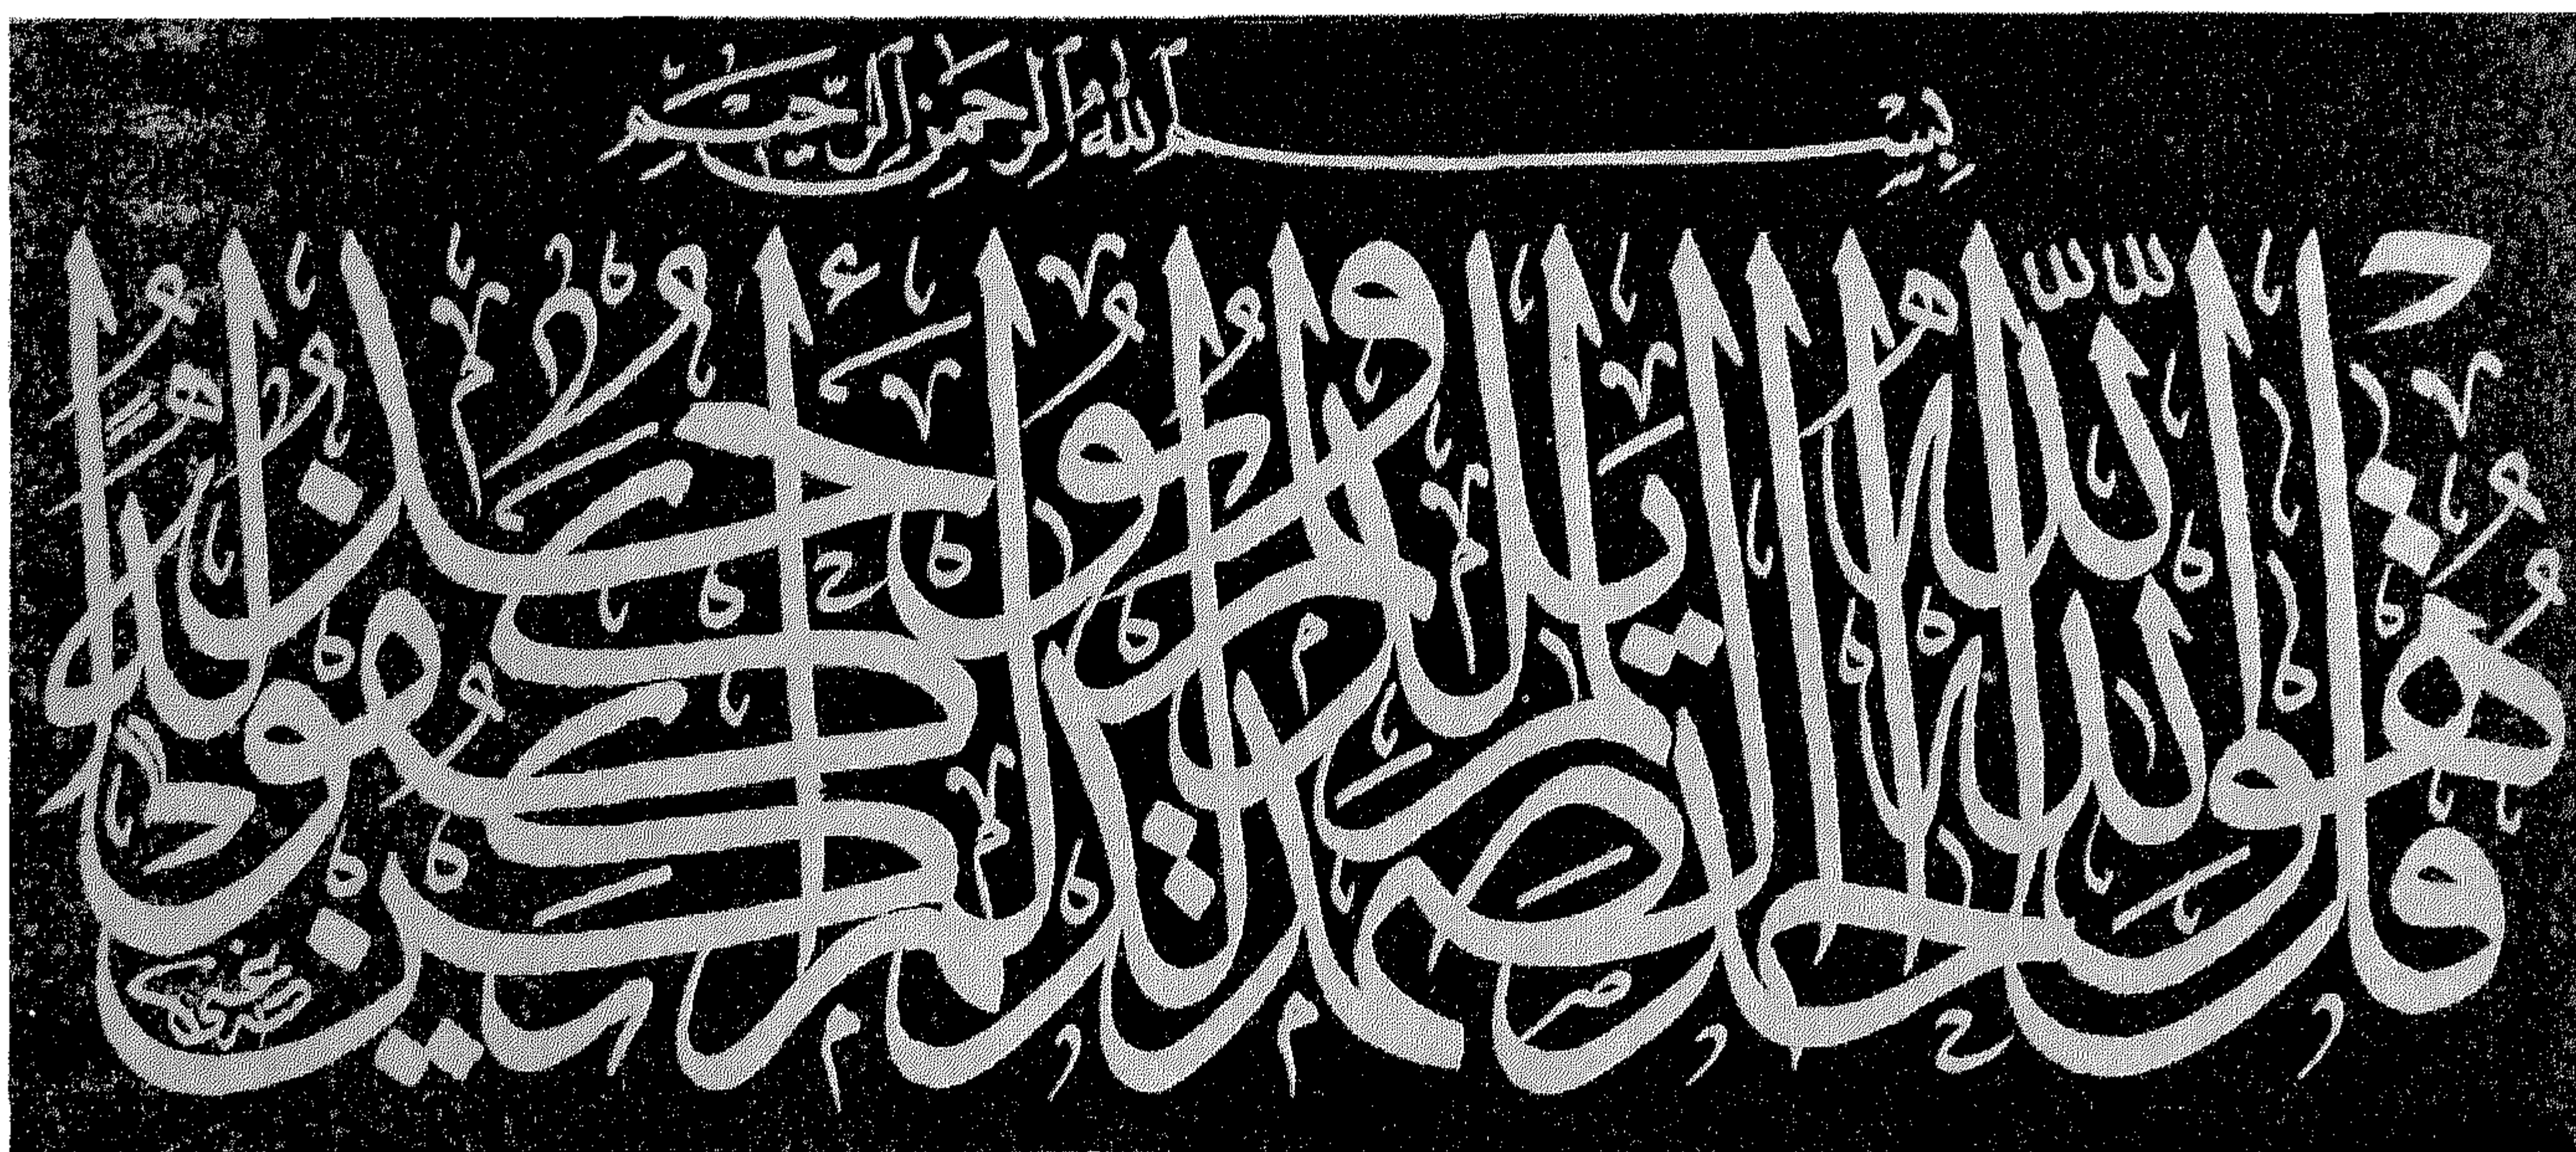 بِسْمِ اللهِ الرَّحْمٰنِ الرَّحِيمِ
قُلْ هُوَ اللهُ أَحَدٌ اللهُ الصَّمَدُ لَمْ يَلِدْ وَلَمْ يُولَدْ وَلَمْ يَكُنْ لَهُ كُفُوًا أَحَدٌ